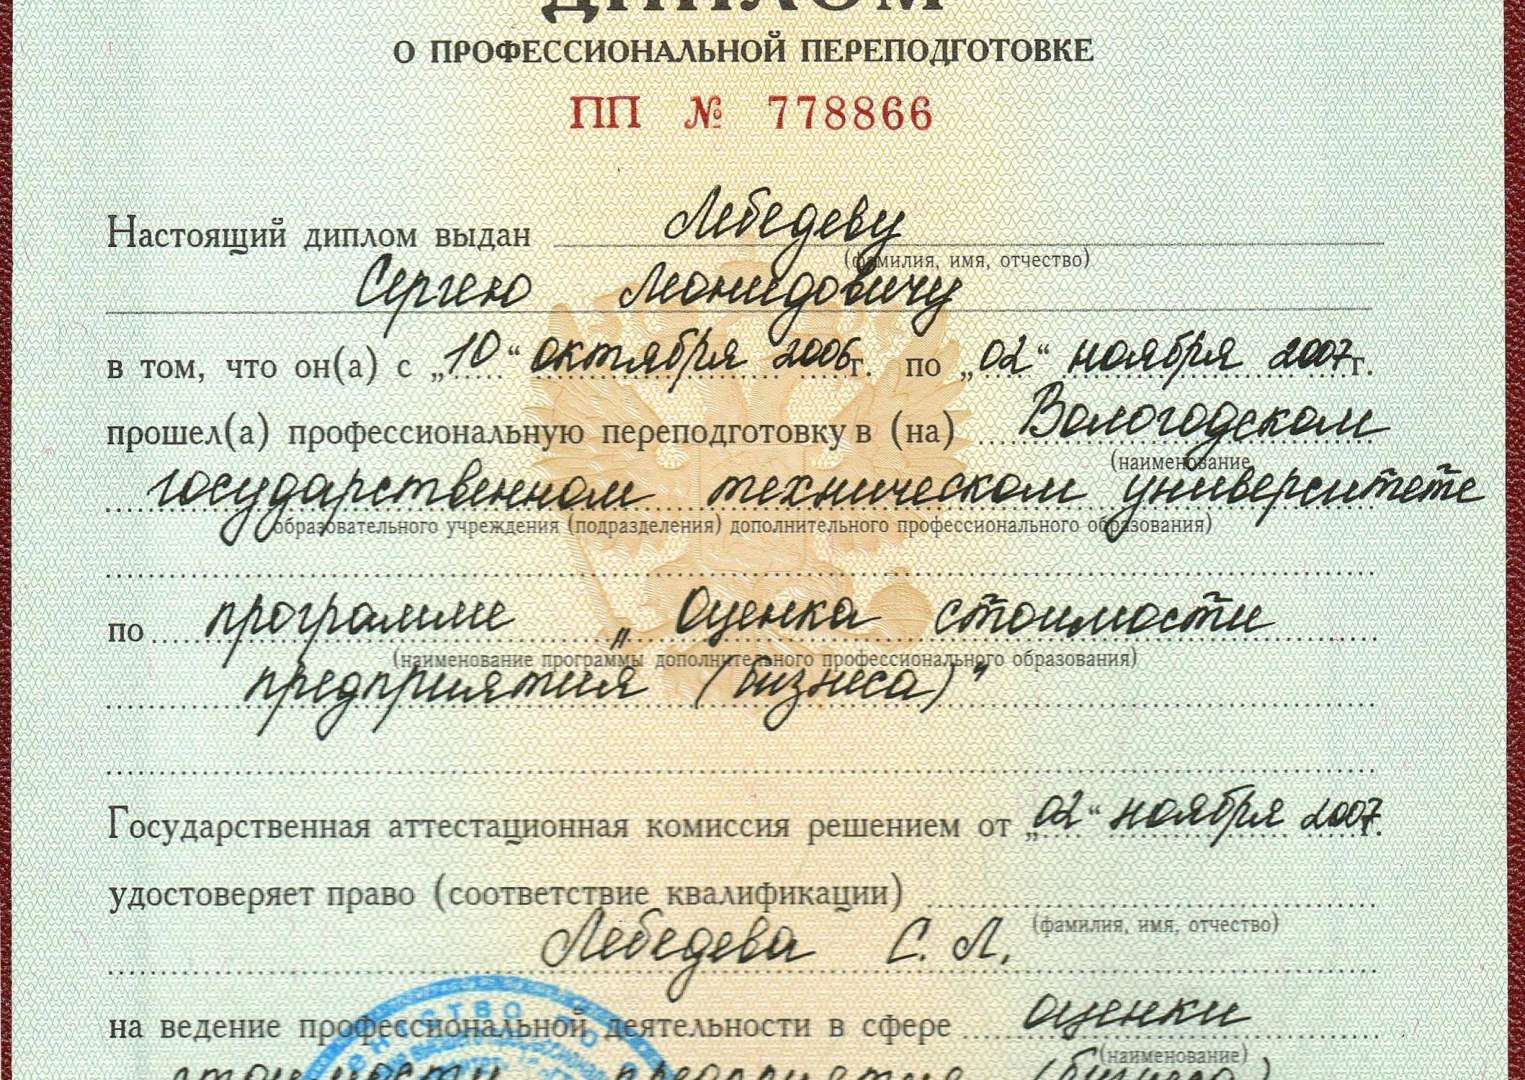 ДИПЛОМ
О ПРОФЕССИОНАЛЬНОЙ ПЕРЕПОДГОТОВКЕ
ПП № 778866
Настоящий диплом выдан Лебедеву
(фамилия, имя, отчество)
Сергею Леонидовичу
в том, что он(а) с „10“ октября 2006г. по „02“ ноября 2007г.
прошел(а) профессиональную переподготовку в (на) Вологодском
(наименование
государственном техническом университете
образовательного учреждения (подразделения) дополнительного профессионального образования)
по программе „Оценка стоимости
(наименование программы дополнительного профессионального образования)
предприятия (бизнеса)"
Государственная аттестационная комиссия решением от „02“ ноября 2007г.
удостоверяет право (соответствие квалификации)
(фамилия, имя, отчество)
Лебедева С. Л.
на ведение профессиональной деятельности в сфере оценки
(наименование)
стоимости предприятия (бизнеса)